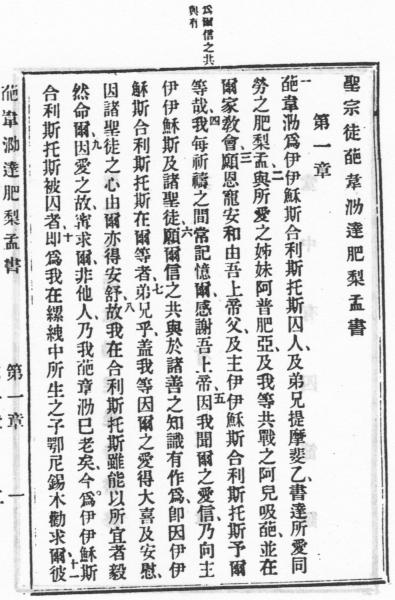 爲爾信之共
與有
聖宗徒葩韋泐達肥梨孟書
第一章
一葩韋泐爲伊伊穌斯合利斯托斯囚人、及弟兄提摩斐乙書達所愛同
勞之肥梨孟、二與所愛之姊妹阿普肥亞、及我等共戰之阿兒吸葩、並在
爾家教會、三願恩寵安和由吾上帝父、及主伊伊穌斯合利斯托斯予爾
等哉、四我每祈禱之間常記憶爾、感謝吾上帝、五因我聞爾之愛信乃向主
伊伊穌斯及諸聖徒、六願爾信之共與於諸善之知識有作爲、卽因伊伊
穌斯合利斯托斯在爾等者、七弟兄乎、蓋我等因爾之愛得大喜及安慰、
因諸聖徒之心由爾亦得安舒、八故我在合利斯托斯雖能以所宜者毅
然命爾、九因愛之故、甯求爾、非他人、乃我葩韋泐巳老矣、今爲伊伊穌斯
合利斯托斯被囚者、十卽爲我在縲絏中所生之子鄂尼錫木勸求爾、十一彼
葩韋泐達肥梨孟書　第一章　一